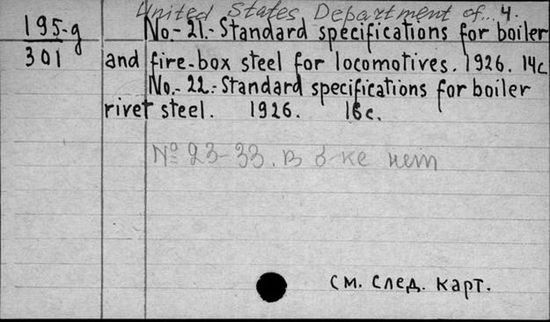 United States Department of... 4.
195-g
301
No.-21.- Standard specifications for boiler
and fire-box steel for locomotives. 1926. 14c
No.-22.- Standard specifications for boiler
rivet steel. 1926. 16c.
№ 23-33. в б-ке нет
см. след. карт.